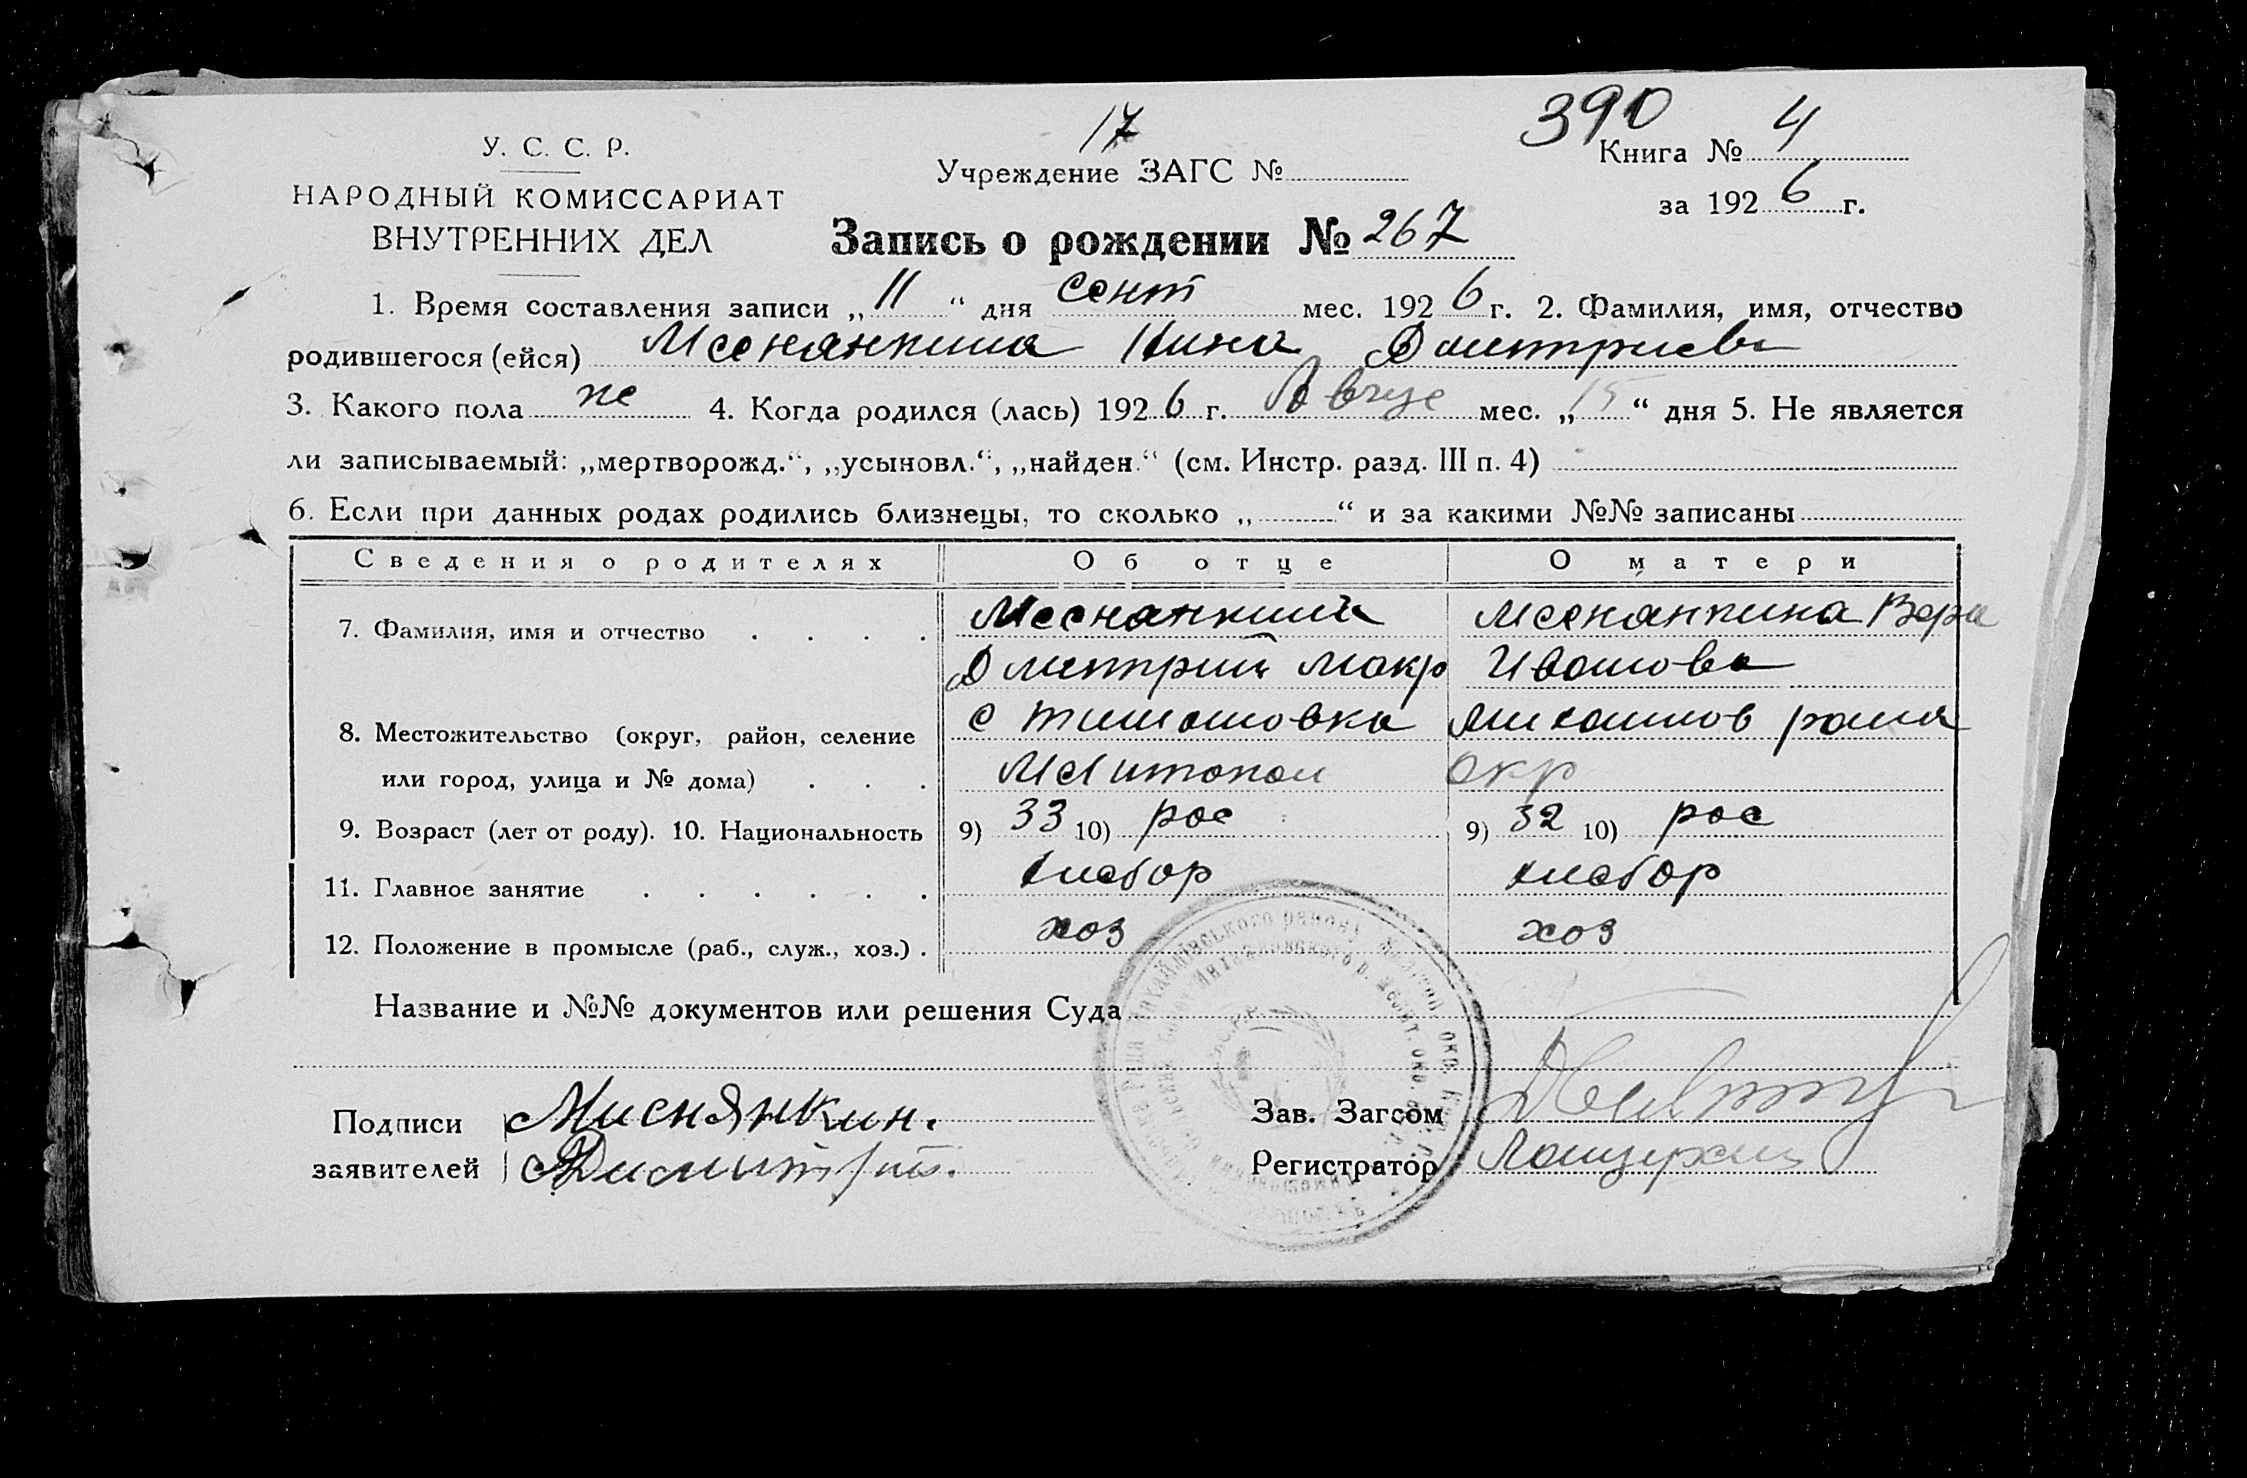 390
17
У. С. С. Р.
НАРОДНЫЙ КОМИССАРИАТ
ВНУТРЕННИХ ДЕЛ
Учреждение ЗАГС №
Книга № 4
за 1926 г.
Запись о рождении № 267
1. Время составления записи „11“ дня сент мес. 1926 г. 2. Фамилия, имя, отчество
родившегося (ейся) Меснянкина Нина Дмитриев
3. Какого пола же 4. Когда родился (лась) 1926 г. Авгус мес. „15“ дня 5. Не является
ли записываемый: „мертворожд.“, „усыновл.“, „найден.“ (см. Инстр. разд. III п. 4)
6. Если при данных родах родились близнецы, то сколько „ “ и за какими №№ записаны
Сведения о родителях Об отце О матери
7. Фамилия, имя и отчество Меснянкин Меснянкина Вера
Дмитрий Макр Иванова
8. Местожительство (округ, район, селение с Тимошовка Михайлов район
или город, улица и № дома) Мелитопол окр
9. Возраст (лет от роду). 10. Национальность 9) 33 10) рос 9) 32 10) рос
11. Главное занятие хлебор хлебор
12. Положение в промысле (раб., служ., хоз.) хоз хоз
Название и №№ документов или решения Суда
Подписи Миснянкин.
заявителей
Зав. Загсом
Регистратор